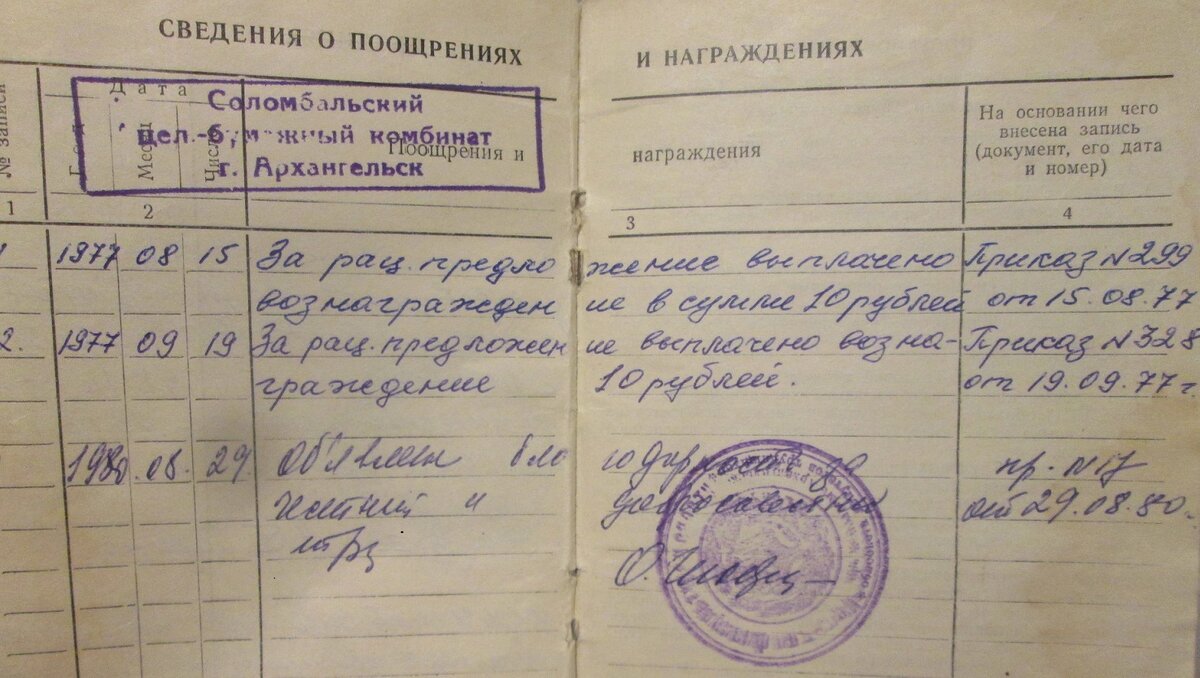 СВЕДЕНИЯ О ПООЩРЕНИЯХ И НАГРАЖДЕНИЯХ
№ записи
Дата
Год
Месяц
Число
Поощрения и награждения
На основании чего
внесена запись
(документ, его дата
и номер)
Соломбальский
цел.-бумажный комбинат
г. Архангельск
1 2 3 4
1 1977 08 15 За рац. предложение выплачено Приказ №299
вознаграждение в сумме 10 рублей от 15.08.77
2. 1977 09 19 За рац. предложение выплачено возна- Приказ №328
граждение 10 рублей. от 19.09.77 г.
1980. 08. 29. Объявлена благодарность за пр. №17
честный и добросовестный от 29.08.80.
труд